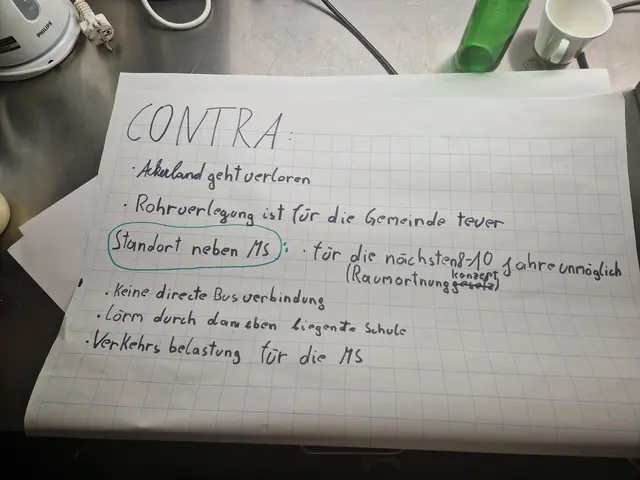 PHILIPS
CONTRA:
· Ackerland geht verloren
· Rohrverlegung ist für die Gemeinde teuer
Standort neben MS: · für die nächsten 8-10 Jahre unmöglich
(Raumortnungskonzept)
· Keine directe Busverbindung
· Lärm durch daneben liegente Schule
· Verkehrsbelastung für die MS